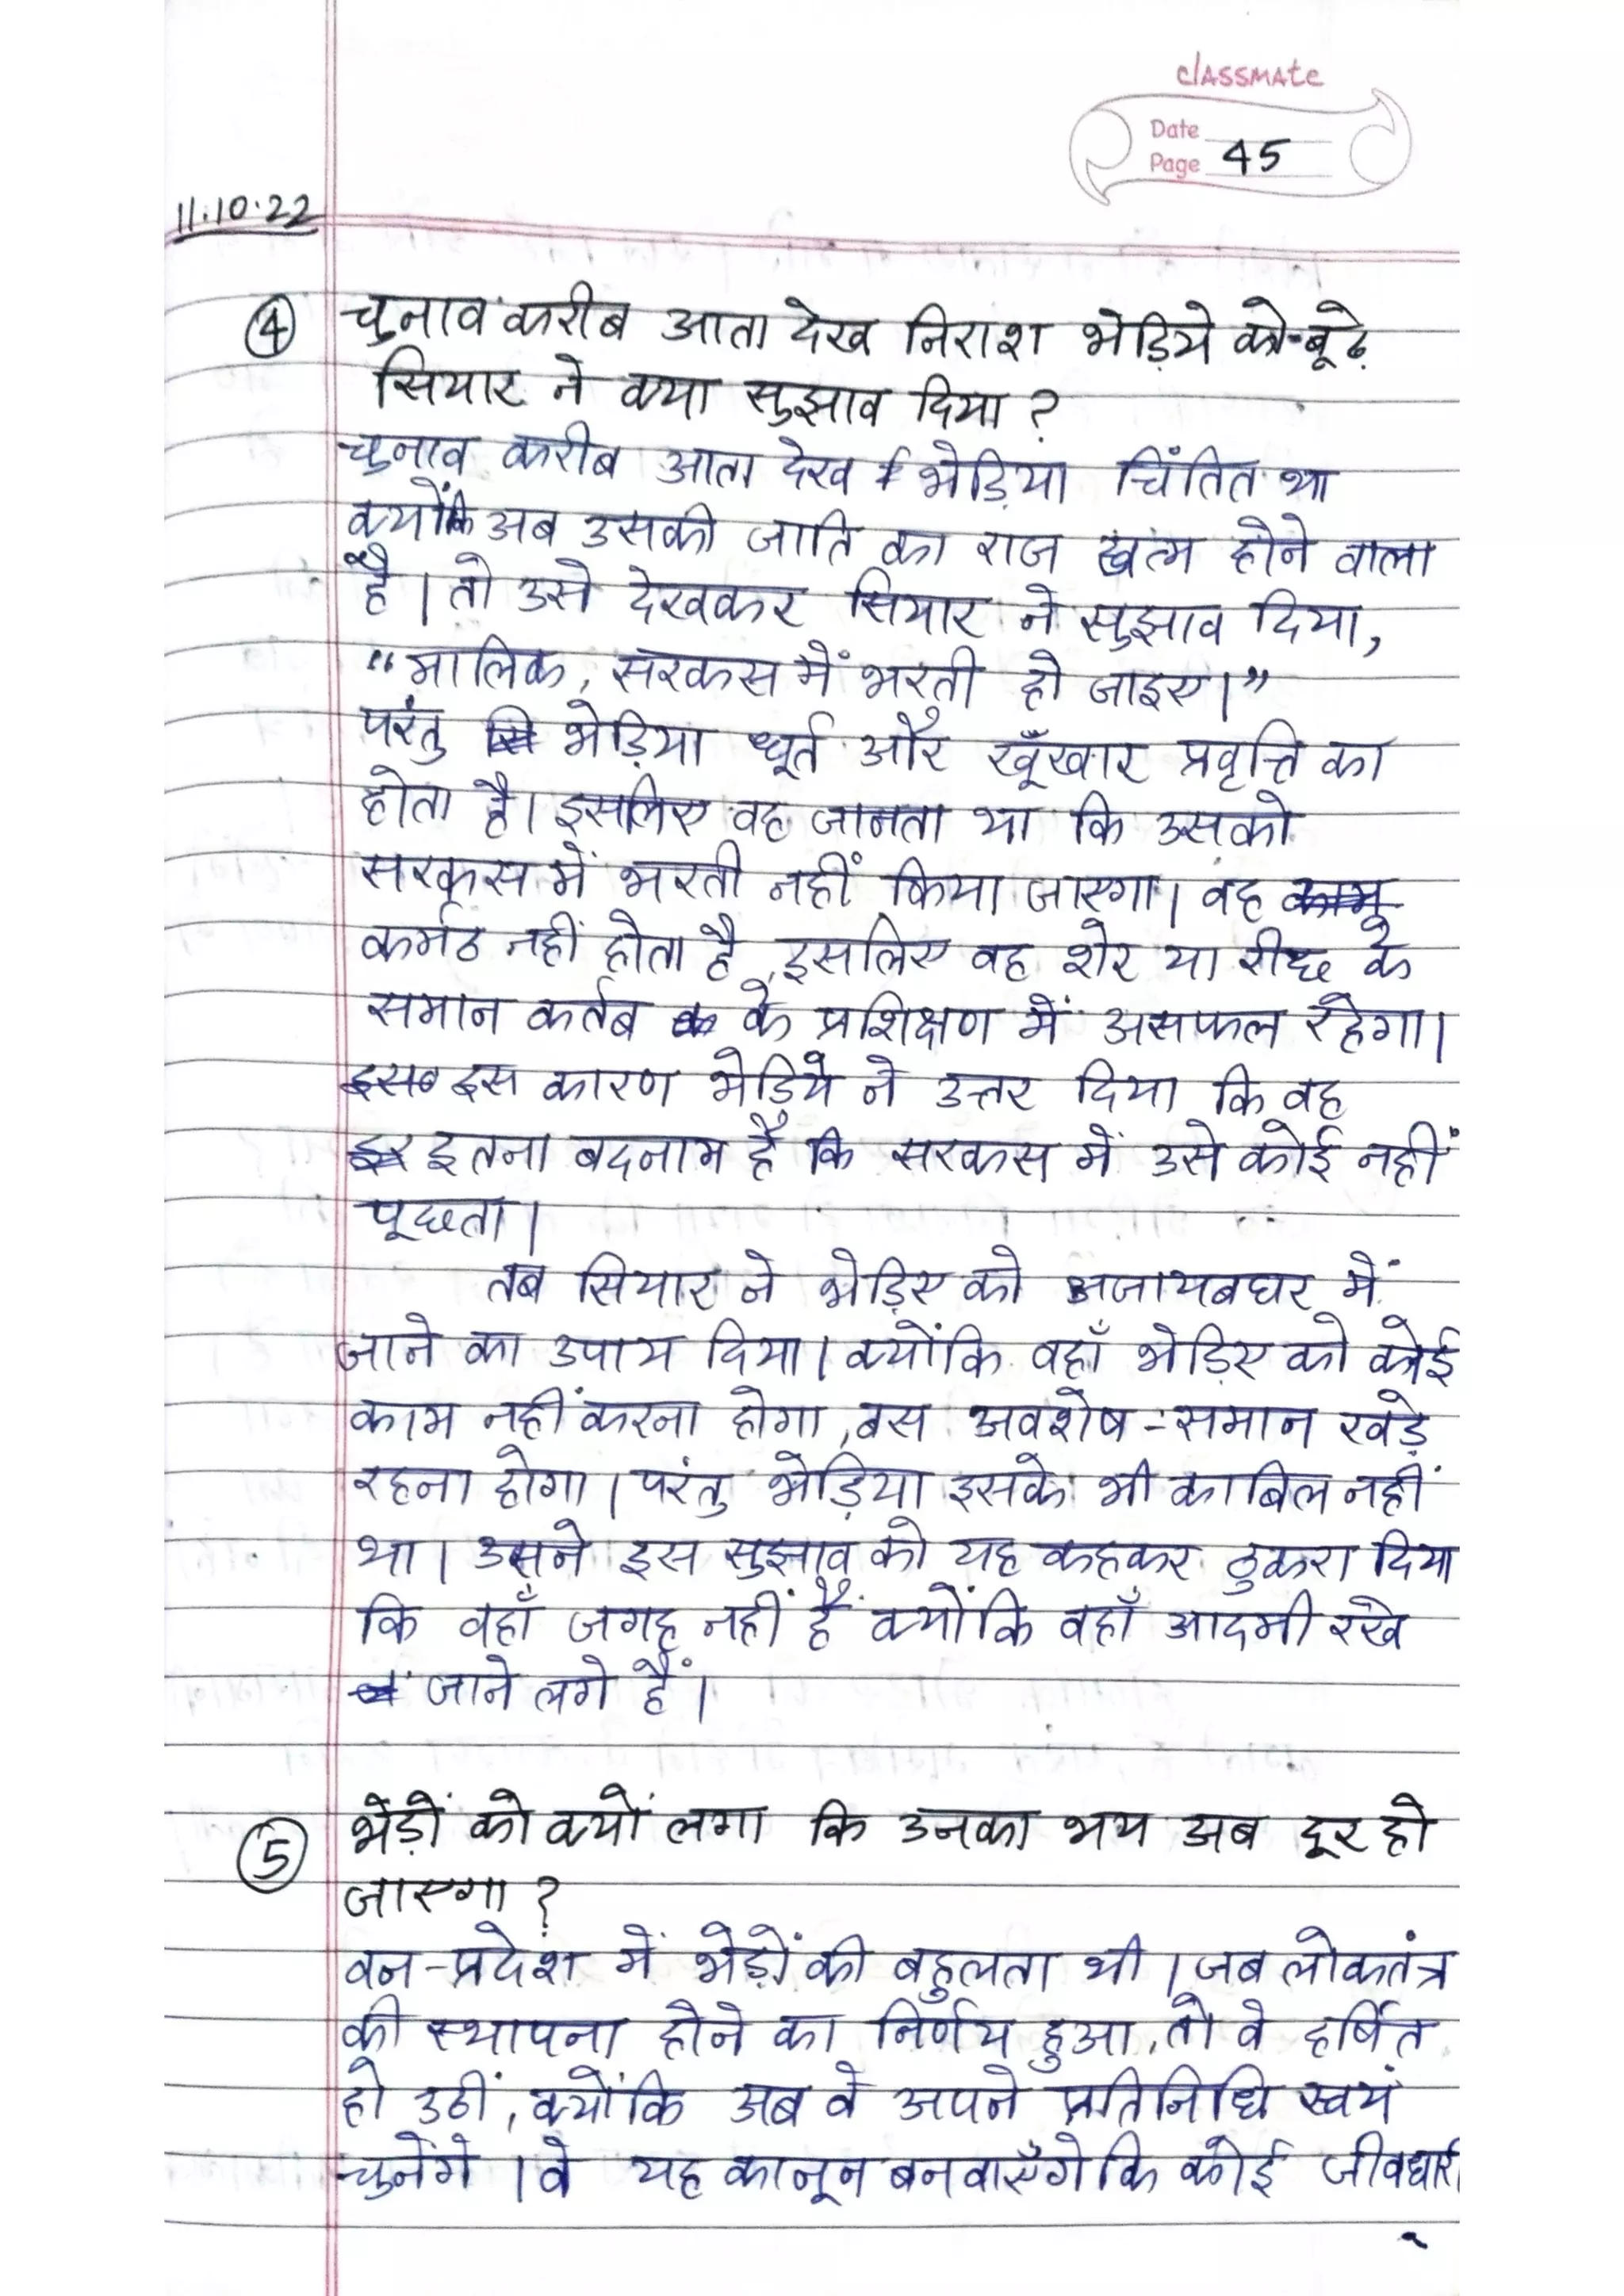 classmate
Date
Page 45
11.10.22
④ चुनाव करीब आता देख निराश भेड़िये को बूढ़े
सियार ने क्या सुझाव दिया ?
चुनाव करीब आता देख भेड़िया चिंतित था
क्योंकि अब उसकी जाति का राज खत्म होने वाला
है। तो उसे देखकर सियार ने सुझाव दिया,
“मालिक, सरकस में भरती हो जाइए।”
परंतु भेड़िया धूर्त और खूँखार प्रवृत्ति का
होता है। इसलिए वह जानता था कि उसको
सरकस में भरती नहीं किया जाएगा। वह
कर्मठ नहीं होता है, इसलिए वह शेर या रीछ के
समान कर्तब के प्रशिक्षण में असफल रहेगा।
इस कारण भेड़िये ने उत्तर दिया कि वह
इतना बदनाम है कि सरकस में उसे कोई नहीं
पूछता।
तब सियार ने भेड़िए को अजायबघर में
जाने का उपाय दिया। क्योंकि वहाँ भेड़िए को कोई
काम नहीं करना होगा, बस अवशेष-समान खड़े
रहना होगा। परंतु भेड़िया इसके भी काबिल नहीं
था। उसने इस सुझाव को यह कहकर ठुकरा दिया
कि वहाँ जगह नहीं है क्योंकि वहाँ आदमी रखे
जाने लगे हैं।
⑤ भेड़ों को क्यों लगा कि उनका भय अब दूर हो
जाएगा ?
वन-प्रदेश में भेड़ों की बहुलता थी। जब लोकतंत्र
की स्थापना होने का निर्णय हुआ, तो वे हर्षित
हो उठीं, क्योंकि अब वे अपने प्रतिनिधि स्वयं
चुनेंगे। वे यह कानून बनवाएँगे कि कोई जीवधारी